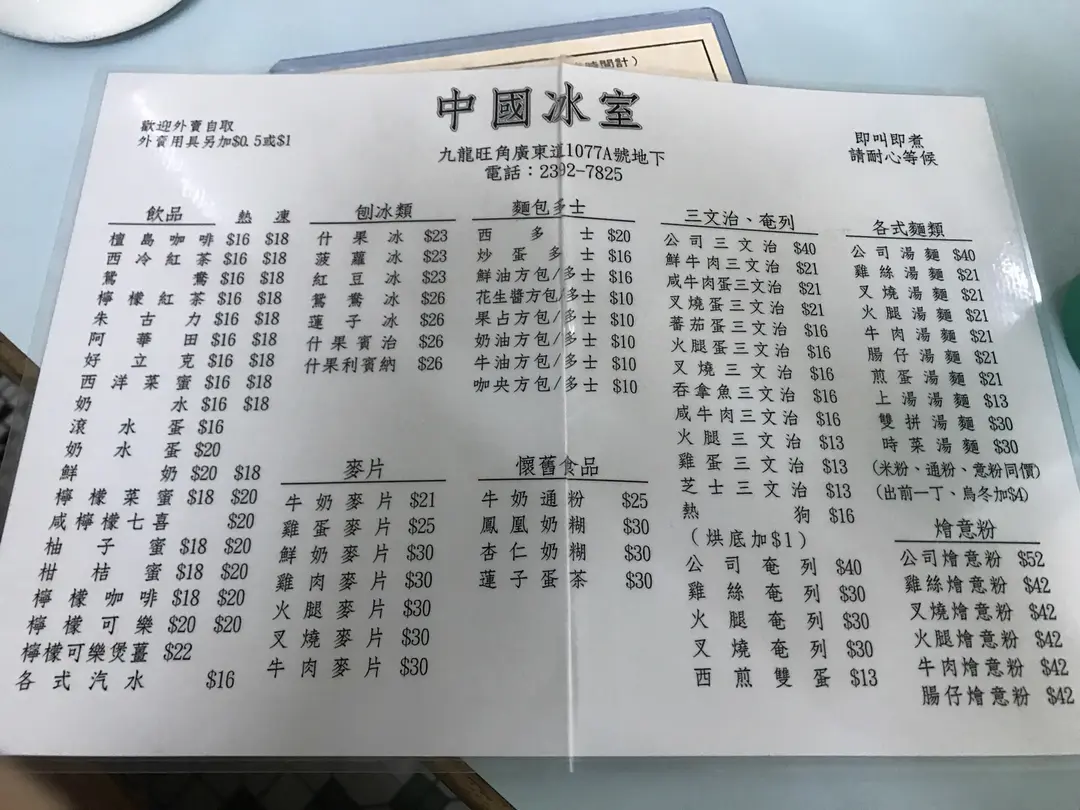 時間計)
中國冰室
歡迎外賣自取
外賣用具另加$0.5或$1
九龍旺角廣東道1077A號地下
電話：2392-7825
即叫即煮
請耐心等候
飲品 熱 凍
檀島咖啡 $16 $18
西冷紅茶 $16 $18
鴛鴦 $16 $18
檸檬紅茶 $16 $18
朱古力 $16 $18
阿華田 $16 $18
好立克 $16 $18
西洋菜蜜 $16 $18
奶水 $16 $18
滾水蛋 $16
奶水蛋 $20
鮮奶 $20 $18
檸檬菜蜜 $18 $20
咸檸檬七喜 $20
柚子蜜 $18 $20
柑桔蜜 $18 $20
檸檬咖啡 $18 $20
檸檬可樂 $20 $20
檸檬可樂煲薑 $22
各式汽水 $16
刨冰類
什果冰 $23
菠蘿冰 $23
紅豆冰 $23
鴛鴦冰 $26
蓮子冰 $26
什果賓治 $26
什果利賓納 $26
麥片
牛奶麥片 $21
雞蛋麥片 $25
鮮奶麥片 $30
雞肉麥片 $30
火腿麥片 $30
叉燒麥片 $30
牛肉麥片 $30
麵包多士
西多士 $20
炒蛋多士 $16
鮮油方包/多士 $16
花生醬方包/多士 $10
果占方包/多士 $10
奶油方包/多士 $10
牛油方包/多士 $10
咖央方包/多士 $10
懷舊食品
牛奶通粉 $25
鳳凰奶糊 $30
杏仁奶糊 $30
蓮子蛋茶 $30
三文治、奄列
公司三文治 $40
鮮牛肉三文治 $21
咸牛肉蛋三文治 $21
叉燒蛋三文治 $21
蕃茄蛋三文治 $16
火腿蛋三文治 $16
叉燒三文治 $16
吞拿魚三文治 $16
咸牛肉三文治 $16
火腿三文治 $13
雞蛋三文治 $13
芝士三文治 $13
熱狗 $16
(烘底加$1)
公司奄列 $40
雞絲奄列 $30
火腿奄列 $30
叉燒奄列 $30
西煎雙蛋 $13
各式麵類
公司湯麵 $40
雞絲湯麵 $21
叉燒湯麵 $21
火腿湯麵 $21
牛肉湯麵 $21
腸仔湯麵 $21
煎蛋湯麵 $21
上湯湯麵 $13
雙拼湯麵 $30
時菜湯麵 $30
(米粉、通粉、意粉同價)
(出前一丁、烏冬加$4)
燴意粉
公司燴意粉 $52
雞絲燴意粉 $42
叉燒燴意粉 $42
火腿燴意粉 $42
牛肉燴意粉 $42
腸仔燴意粉 $42